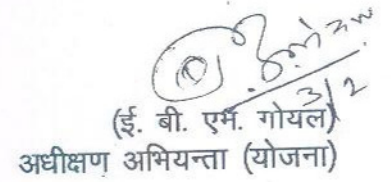 3/2
(ई. बी. एम. गोयल)
अधीक्षण अभियन्ता (योजना)